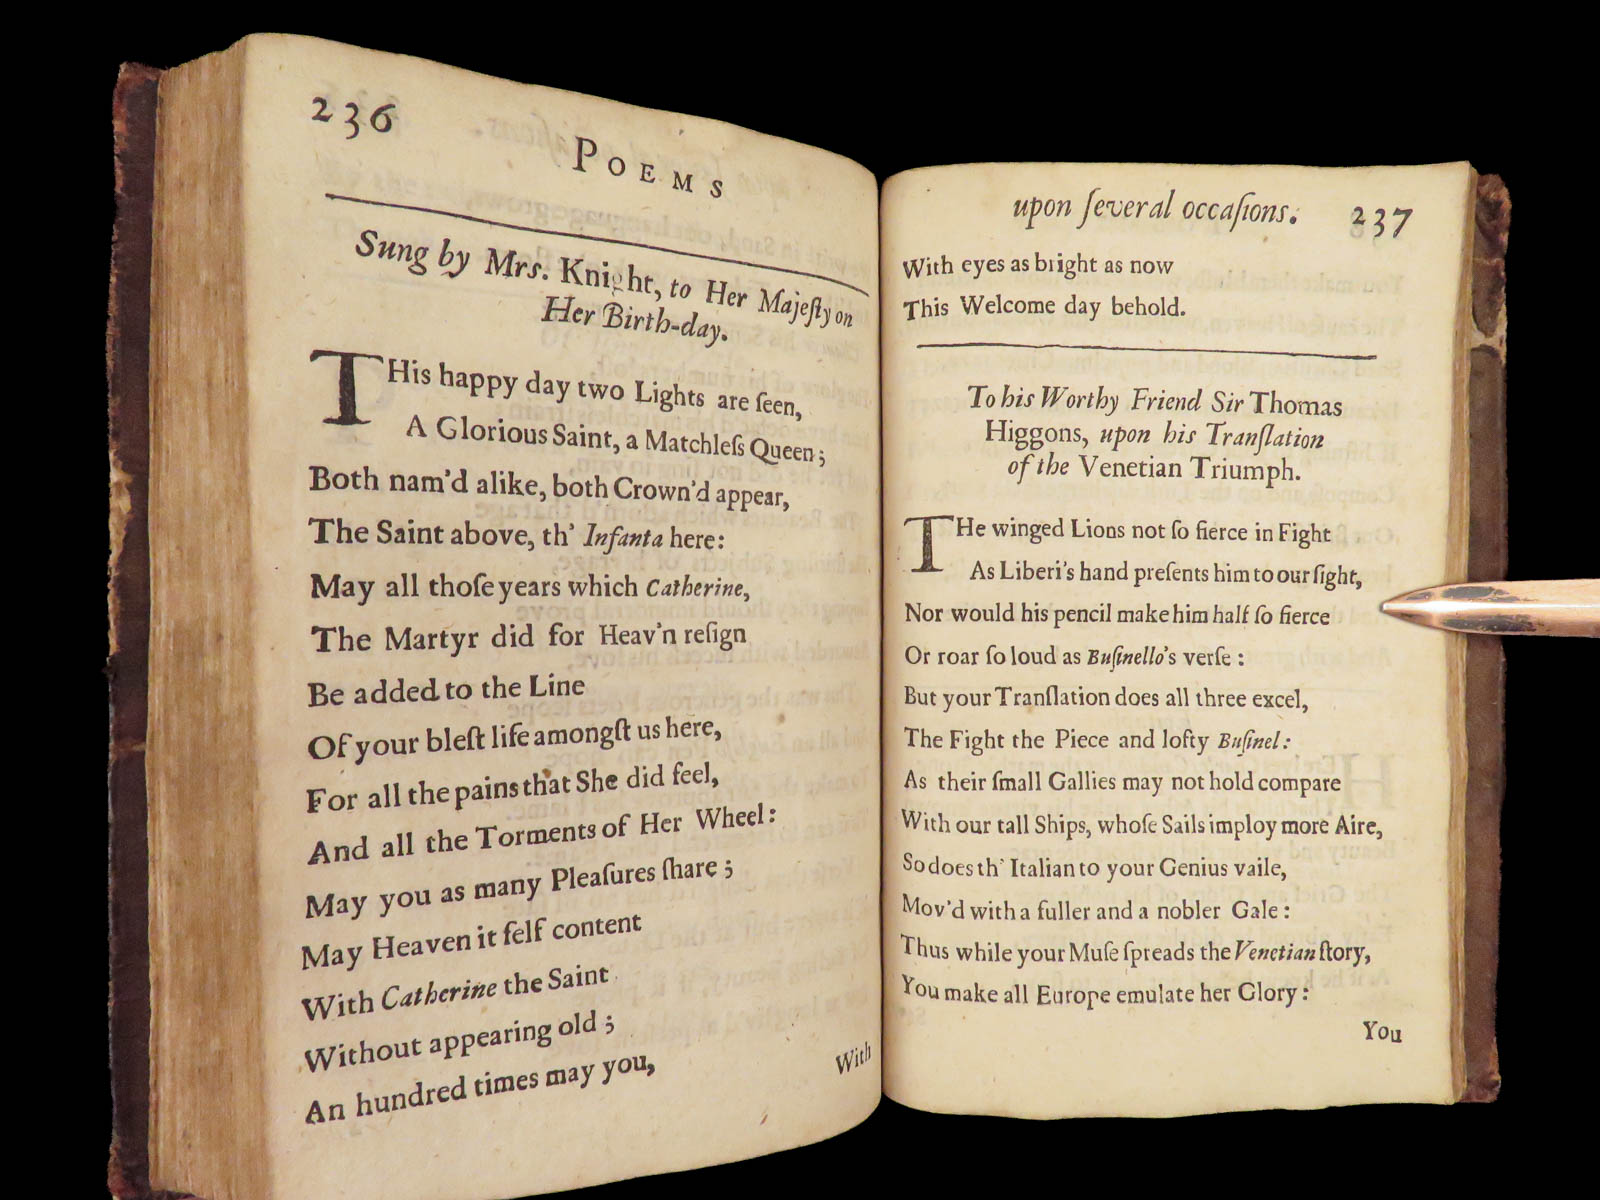 236
POEMS
Sung by Mrs. Knight, to Her Majeſty on
Her Birth-day.
THis happy day two Lights are ſeen,
A Glorious Saint, a Matchleſs Queen;
Both nam'd alike, both Crown'd appear,
The Saint above, th' Infanta here:
May all thoſe years which Catherine,
The Martyr did for Heav'n reſign
Be added to the Line
Of your bleſt life amongſt us here,
For all the pains that She did feel,
And all the Torments of Her Wheel:
May you as many Pleaſures ſhare;
May Heaven it ſelf content
With Catherine the Saint
Without appearing old;
An hundred times may you,
With
upon ſeveral occaſions. 237
With eyes as bright as now
This Welcome day behold.
To his Worthy Friend Sir Thomas
Higgons, upon his Tranſlation
of the Venetian Triumph.
THe winged Lions not ſo fierce in Fight
As Liberi's hand preſents him to our ſight,
Nor would his pencil make him half ſo fierce
Or roar ſo loud as Buſinello's verſe:
But your Tranſlation does all three excel,
The Fight the Piece and lofty Buſinel:
As their ſmall Gallies may not hold compare
With our tall Ships, whoſe Sails imploy more Aire,
So does th' Italian to your Genius vaile,
Mov'd with a fuller and a nobler Gale:
Thus while your Muſe ſpreads the Venetian ſtory,
You make all Europe emulate her Glory:
You